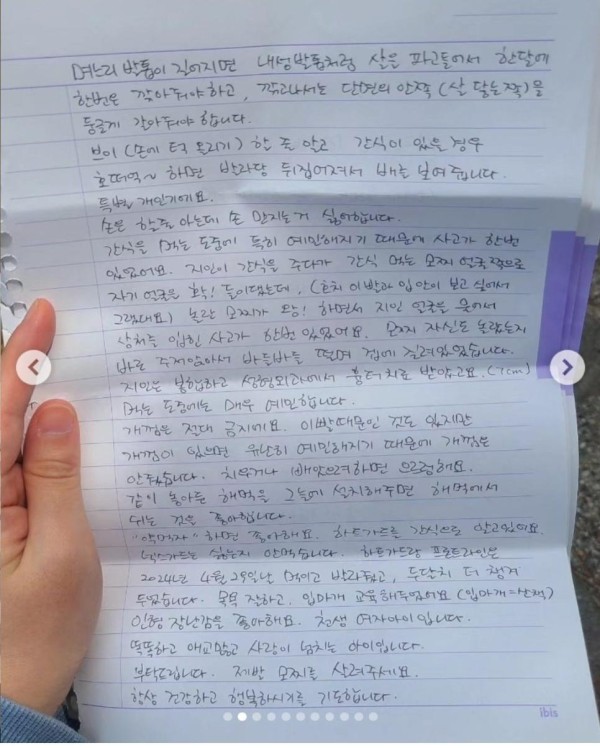 며느리 발톱이 길어지면 내성발톱처럼 살을 파고들어서 한달에
한번은 깎아줘야하고, 깎고나서는 단면의 안쪽 (살 닿는쪽)을
둥글게 갈아줘야 합니다.
브이 (손에 턱 올리기) 할 줄 알고 간식이 있을 경우
호떡역~ 하면 발라당 뒤집어져서 배를 보여줍니다.
특별 개인기에요.
손은 할줄 아는데 손 만지는거 싫어합니다.
간식을 먹는 도중에 특히 예민해지기 때문에 사고가 한번
있었어요. 지인이 간식을 주다가 간식 먹는 모찌 얼굴쪽으로
자기 얼굴을 확! 들이댔는데, (흔치 이빨과 입안이 보고싶어서
그랬대요) 놀란 모찌가 왕! 하면서 지인 얼굴을 물어서
상처를 입힌 사고가 한번 있었어요. 모찌 자신도 놀랐는지
바로 주저앉아서 바들바들 떨며 겁에 질려있었습니다.
지인은 봉합하고 성형외과에서 흉터치료 받았고요. (1cm)
먹는 도중에는 매우 예민합니다.
개껌은 절대 금지에요. 이빨때문인 것도 있지만
개껌이 있으면 유난히 예민해지기 때문에 개껌은
안줬습니다. 치우거나 뺏었으려하면 으르렁해요.
같이 놓아둔 해먹을 그늘에 설치해주면 해먹에서
쉬는 것을 좋아합니다.
"약먹자" 하면 좋아해요. 하트가드를 간식으로 알고있어요.
넥스가드는 싫은지 안먹습니다. 하트가드랑 프론트라인은
2024년 4월 29일날 먹이고 발라줬고, 두달치 더 챙겨
두었습니다. 목욕 잘하고, 입마개 교육해두었어요 (입마개=산책)
인형 장난감을 좋아해요. 천생 여자아이입니다.
똑똑하고 애교많고 사랑이 넘치는 아이입니다.
부탁드립니다. 제발 모찌를 살려주세요.
항상 건강하고 행복하시기를 기도합니다.
ibis